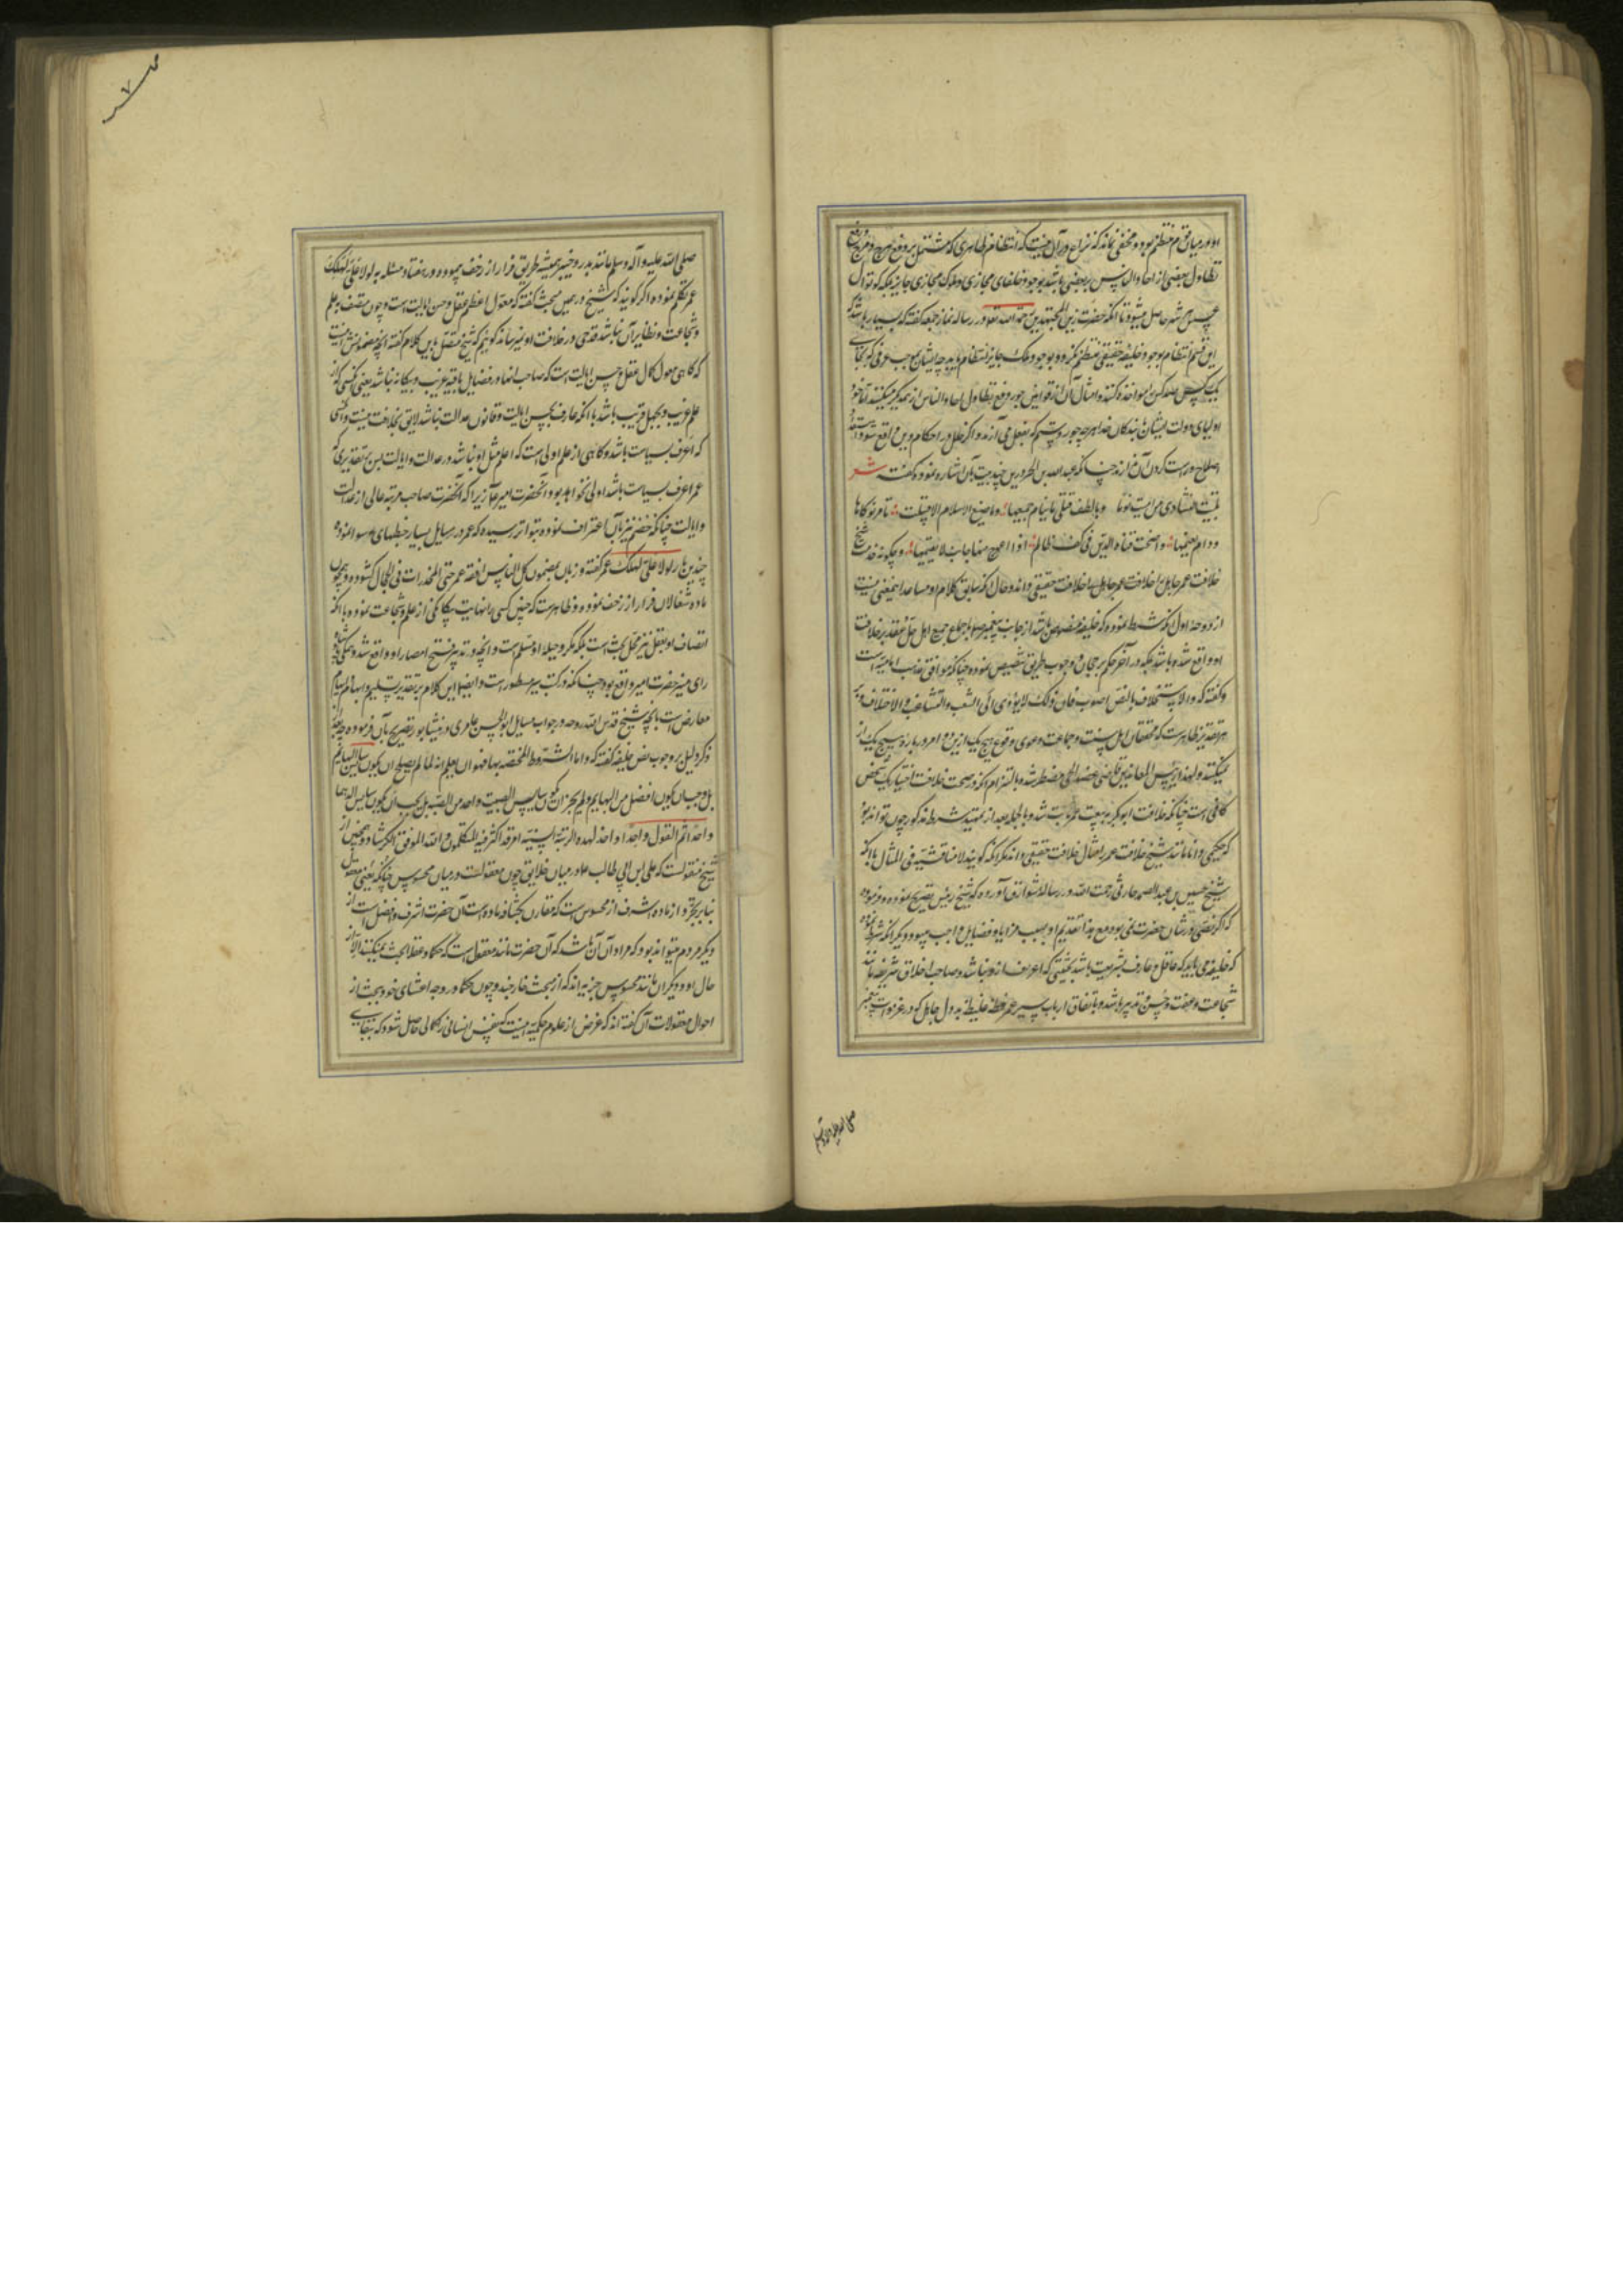 او در میان قوم منتظم بود و مخفی نماند که نزاع در آن نیست که انتظام ظاهری که مشتمل بر دفع هرج و مرج و رفع
تطاول بعضی از احاد الناس بر بعضی باشد بوجود خلفای مجازی و ملوک مجازی جایز بلکه
شهر حاصل میشود تا آنکه حضرت زین المجتهدین رحمة الله در رساله نماز جمعه گفته که بسیار باشد که
این قسم انتظام بوجود خلیفه حقیقی منتظم نگردد و بوجود ملک جایر انتظام یابد چه ایشان بموجب عرفی که بجای
یک کس صد کس را مواخذه کنند و امثال آن از قوانین جور و رفع تطاول احاد الناس از یکدیگر میکنند اما خود
اولیای دولت ایشان با بندگان خدا هر چه جور و ستم که بفعل می آرند و اگر خللی در احکام دین واقع شود
اصلاح و درست کردن آن ندارند چنانکه عبدالله بن الحر درین چند بیت بآن اشاره نموده گفته شعر
تبیت النشاوی من امیة نوما وبالطف قتلی ما ینام حمیمها وما ضیع الاسلام الا قبیلة تامر نوکاها
ودام نعیمها واضحت قناة الدین فی کف ظالم اذا اعوج منها جانب لا یقیمها و چگونه شیخ
خلافت عمر جاهل را خلافت حقیقی داند و حال آنکه سابق کلام او مساعد اینمعنی نیست
از دو وجه اول آنکه شرط نموده که خلیفه منصوص باشد از جانب پیغمبر صلعم یا باجماع جمیع اهل حل و عقد بر خلافت
او واقع شده باشد بلکه در آخر حکم برجحان و وجوب طریق تنصیص نموده چنانکه موافق مذهب امامیه است
و گفته که والاستخلاف بالنص اصوب فان ذلک لا یؤدی الی الشعب والتشاغب والاختلاف و بر
هر تقدیر ظاهرست که محققان اهل سنت و جماعت دعوی وقوع هیچ یک ازین دو امر در باره هیچ یک از
نمیکنند و لهذا رئیس المعاندین قاضی عضد ایجی مضطر شده بالتزام آنکه در صحت خلافت اختیار یک شخص
کافی است چنانکه خلافت ابو بکر به بیعت عمر ثابت شد و بالجمله بعد از تمهید شرط مذکور چون تواند بود
که حکیمی دانا مانند شیخ خلافت عمر و امثال خلافت حقیقی داند مگر آنکه گویند لا مناقشة فی المثال با آنکه
شیخ حسین بن عبد الصمد حارثی رحمت الله در رساله شوارق آورده که شیخ رئیس تصریح نموده و فرموده
که اگر نصی در شان حضرت نمی بود مع هذا تقدیم او بسبب مزایا و فضایل واجب میبود دیگر آنکه شرط نموده
که خلیفه می باید که عاقل و عارف بشریعت باشد بحیثیتی که اعرف از او نباشد و صاحب اخلاق شریفه مانند
شجاعت و عفت و حسن تدبیر باشد و باتفاق ارباب سیر عمر فظ غلیظ بد دل جاهل که در غزوات پیغمبر
صلی الله علیه و آله وسلم
صلی الله علیه وآله وسلم مانند بدر و خیبر همیشه طریق فرار از زحف پیموده و در هفتاد مسئله به لولا علی لهلک
عمر تکلم نموده اگر گویند که شیخ درین مبحث گفته که معول اعظم عقل و حسن ایالت است و چون متصف به علم
و شجاعت و نظایر آن نباشد قدحی در خلافت او نمیرساند گوییم که شیخ متصل باین کلام گفته آنچه مضمونش اینست
که گاهی معول کمال عقل و حسن ایالت است که صاحب آنها در فضایل باقیه غریب و بیگانه نباشد یعنی کسی که از
علم غریب و بجهل قریب باشد با آنکه عارف بحسن ایالت و قانون عدالت نباشد لایق بخلافت نیست و آنکسی
که اعرف بسیاست باشد و گاهی از علم اولی است که اعلم مثل او نباشد در عدالت و ایالت پس بر تقدیری که
عمر اعرف بسیاست باشد اولی نخواهد بود و آنحضرت امیر ع زیرا که آنحضرت صاحب مرتبه عالی از عدالت
و ایالت چنانکه خصم نیز بآن اعتراف نموده و بتواتر رسیده که عمر در رسایل بسیار خبطهای رسوا نموده
چندین بار لولا علی لهلک عمر گفته و زبان بمضمون کل الناس افقه من عمر حتی المخدرات فی الحجال گشوده و همچون
ماده شغالان فرار از زحف نموده و ظاهرست که چنین کسی را نهایت بیگانگی از علم و شجاعت بوده و با آنکه
اتصاف او بعقل نیز محل بحث است بلکه مکر و حیله او مسلم است و آنچه در تدبیر فتح امصار او واقع شد
رای منیر حضرت امیر واقع بود چنانکه در کتب سیر مسطور است و ایضا این کلام بر تقدیر تسلیم
معارض است بآنچه شیخ قدس الله روحه در جواب مسایل ابو الحسن عامری در نیشابور تصریح بآن فرموده چه بعد
ذکر دلیل بر وجوب نص خلیفه گفته که واما الشروط المختصه بها فهو ان یعلم انه لما لم یصلح ان یکون سایس البهایم
بل وجب ان یکون افضل من البهایم ولم یجز ان یکون سایس الصبیت واحد من الصبیة بل یجب ان یکون سایس الدهما
واحدا ثم القول واحدا واحد لهذه الرتبة السنیة اکثر فیه المتکلمون والله الموفق للرشاد و همچنین از
شیخ منقولست که علی ابن ابی طالب علیه در میان خلایق چون معقولست در میان محسوس چنانکه یعنی معقول
بنا بر تجرد از ماده اشرف از محسوس است که مقارن کثافت ماده است آن حضرت اشرف و افضل است از
دیگر مردم میتواند بود که مراد آن باشد که آن حضرت مانند معقول است که حکما و عقلا بحث نمیکنند الا از
حال او و دیگران مانند محسوس جزییه اند که از بحث خارجند و چون حکما در وجه اعتنای خود ببحث از
احوال معقولات آن گفته اند که غرض از علوم حکمیه اینست که نفس انسانی را کمالی حاصل شود که ببقای